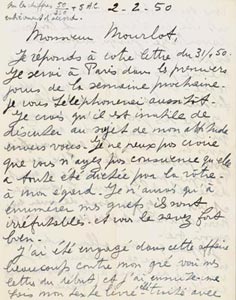 2-2-50
Monsieur Mourlot,
Je réponds à votre lettre du 31/1/50.
Je serai à Paris dans les premiers
jours de la semaine prochaine.
je vous téléphonerai aussitôt.
Je crois qu'il est inutile de
discuter au sujet de mon attitude
envers vous. Je ne peux pas croire
que vous n'ayez pas conscience qu'elle
a toute été dictée par la vôtre
à mon égard. Je n'aurai qu'à
énumérer mes griefs ils sont
irréfutables. et vous le savez fort
bien.
J'ai été engagé dans cette affaire
beaucoup contre mon gré voir mes
lettres du début et j'ai
fois mon texte avec